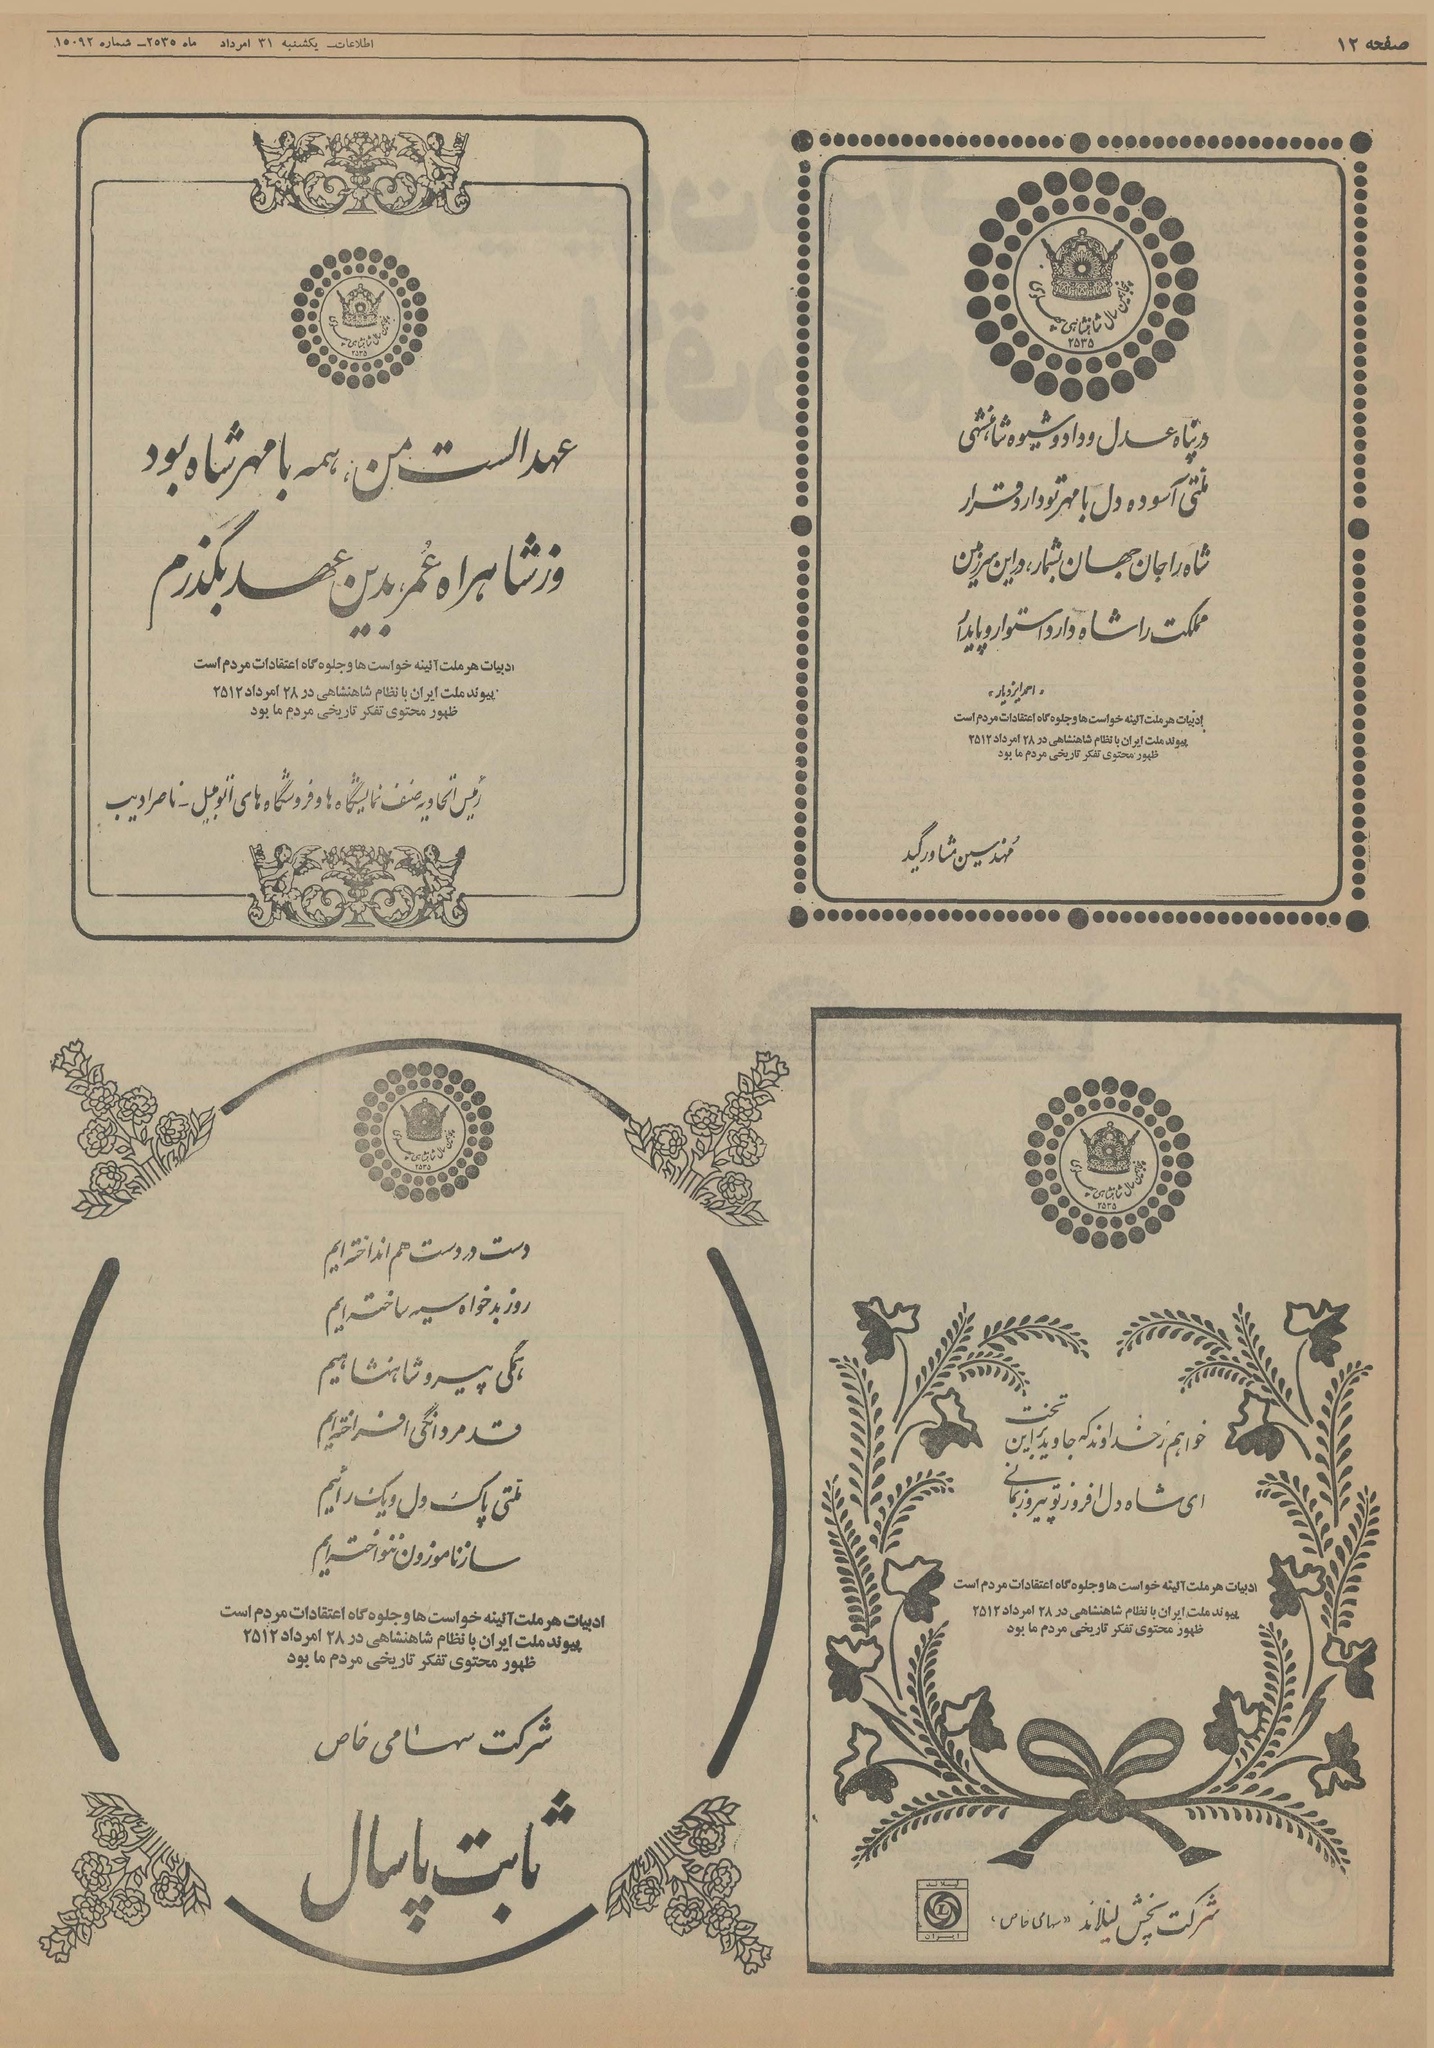 صفحه ۱۲
اطلاعات ـ یکشنبه ۳۱ امرداد ماه ۲۵۳۵ ـ شماره ۱۵۰۹۲
پنجاهمین سال شاهنشاهی پهلوی
۲۵۳۵
در پناه عدل و داد و شیوه شاهنشهی
ملتی آسوده دل با مهر تو دارد قرار
شاه را جان جهان بشمار، در این سرزمین
مملکت را شاه دارد استوار و پایدار
«احمد ایزدیار»
ادبیات هر ملت آئینه خواست ها و جلوه گاه اعتقادات مردم است
پیوند ملت ایران با نظام شاهنشاهی در ۲۸ امرداد ۲۵۱۲
ظهور محتوی تفکر تاریخی مردم ما بود
مهندسین مشاور گید
پنجاهمین سال شاهنشاهی پهلوی
۲۵۳۵
عهد الست من، همه با مهر شاه بود
وز شاهراه عُمر، بدین عهد بگذرم
ادبیات هر ملت آئینه خواست ها و جلوه گاه اعتقادات مردم است
پیوند ملت ایران با نظام شاهنشاهی در ۲۸ امرداد ۲۵۱۲
ظهور محتوی تفکر تاریخی مردم ما بود
رئیس اتحادیه صنف نمایشگاه ها و فروشگاه های اتومبیل ـ ناصر ادیب
پنجاهمین سال شاهنشاهی پهلوی
۲۵۳۵
خواهم ز خداوند که جاوید بر این تخت
ای شاه دل افروز تو پیروز بمانی
ادبیات هر ملت آئینه خواست ها و جلوه گاه اعتقادات مردم است
پیوند ملت ایران با نظام شاهنشاهی در ۲۸ امرداد ۲۵۱۲
ظهور محتوی تفکر تاریخی مردم ما بود
شرکت پخش لیلاند «سهامی خاص»
لیلاند
ایران
پنجاهمین سال شاهنشاهی پهلوی
۲۵۳۵
دست در دست هم انداخته ایم
روز بدخواه سیه ساخته ایم
همگی پیرو شاهنشاهیم
قد مردانگی افراخته ایم
ملتی پاک دل و یک رائیم
ساز ناموزون ننواخته ایم
ادبیات هر ملت آئینه خواست ها و جلوه گاه اعتقادات مردم است
پیوند ملت ایران با نظام شاهنشاهی در ۲۸ امرداد ۲۵۱۲
ظهور محتوی تفکر تاریخی مردم ما بود
شرکت سهامی خاص
ثابت پاسال